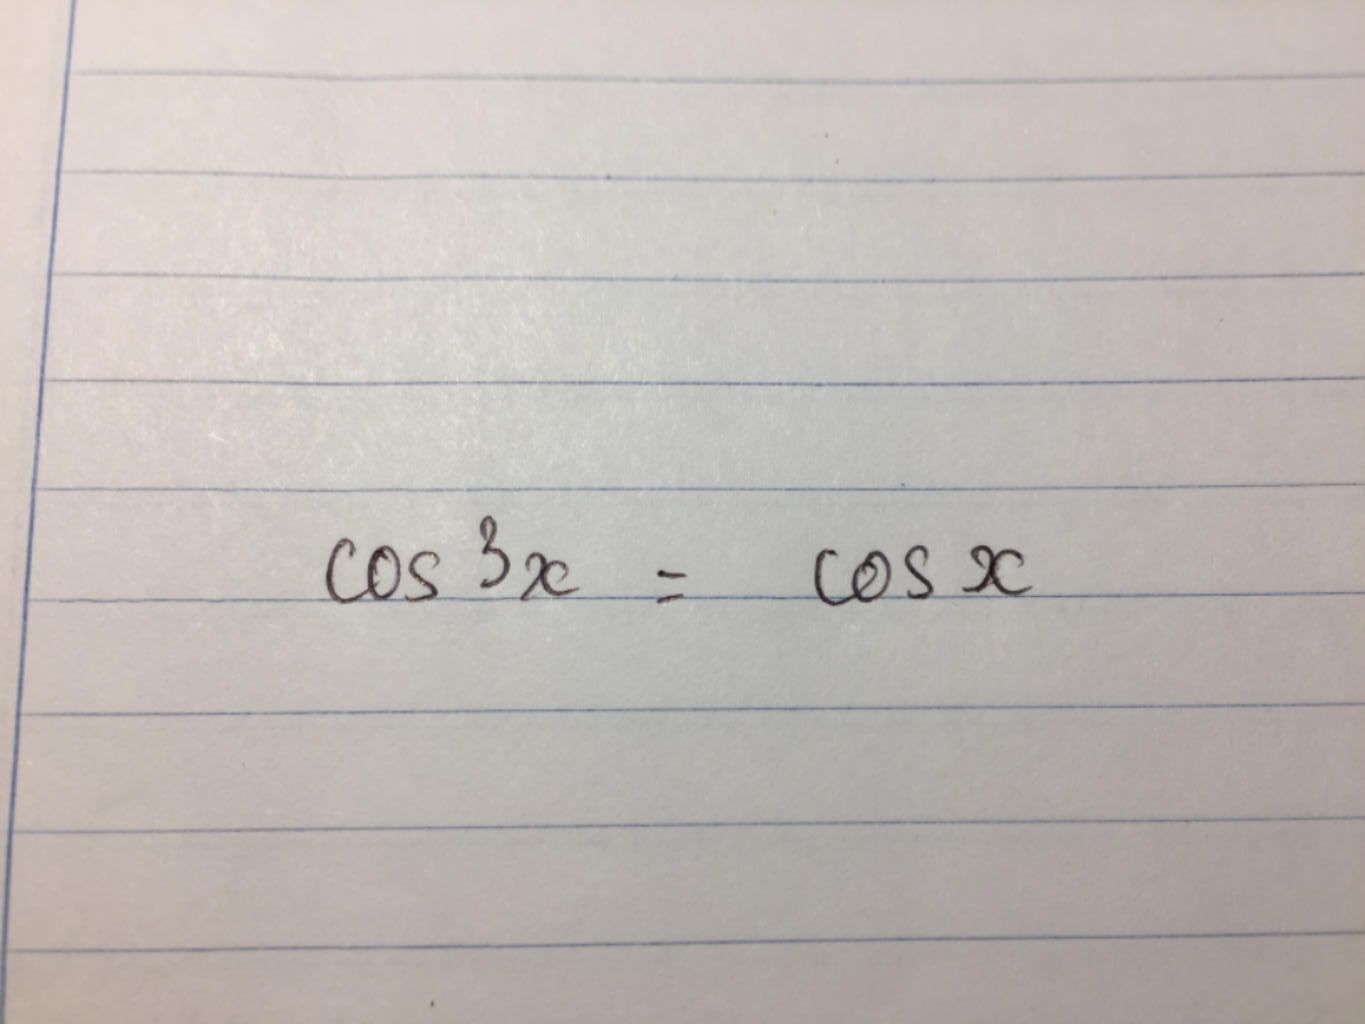 cos³x = cos x